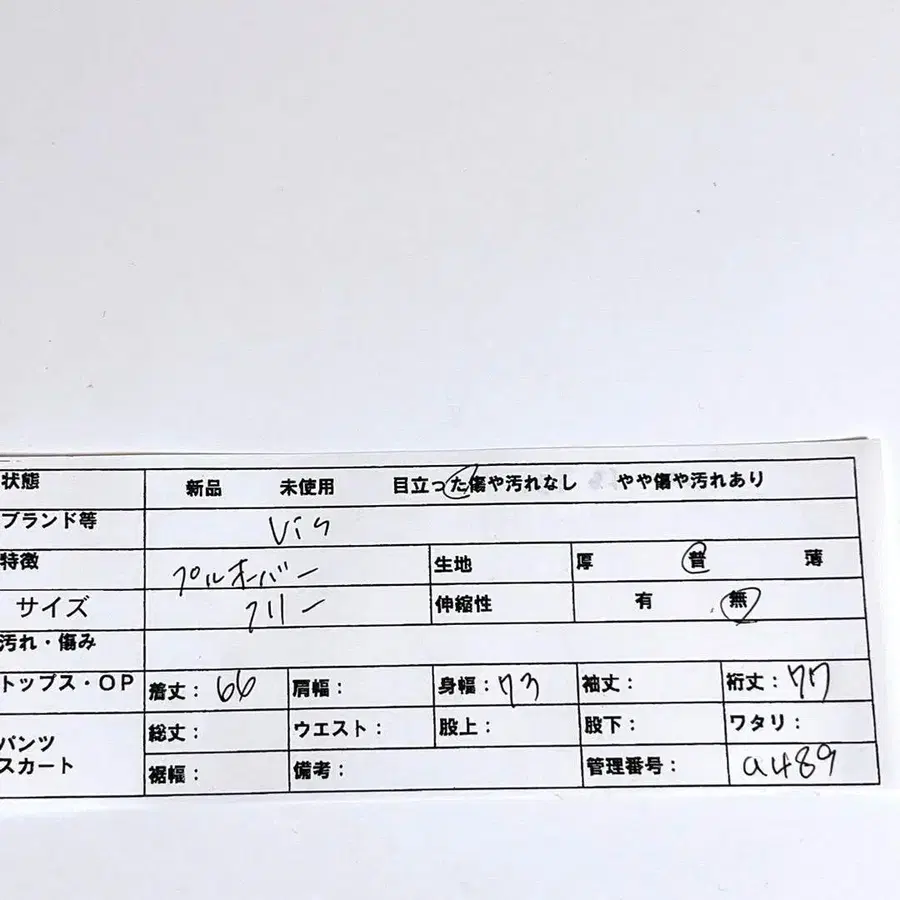 状態 新品 未使用 目立った傷や汚れなし やや傷や汚れあり
ブランド等 Vis
特徴 プルオーバー 生地 厚 普 薄
サイズ フリー 伸縮性 有 無
汚れ・傷み
トップス・OP 着丈: 66 肩幅: 身幅: 73 袖丈: 裄丈: 77
パンツ 総丈: ウエスト: 股上: 股下: ワタリ:
スカート 裾幅: 備考: 管理番号: a489